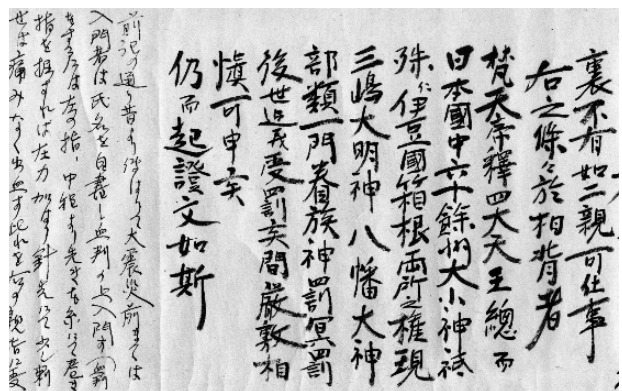 裏不有如二親可仕事
右之條々於相背者
梵天帝釋四大天王總而
日本國中六十餘州大小神祇
殊仁伊豆國箱根兩所之権現
三嶋大明神八幡大神
部類一門眷族神罰冥罰
後世迄茂受罰矣間嚴敷相
慎可申矣
仍而起證文如斯
前記の通昔より伝はりて大震災前までは
入門者は氏名を自書し血判の上入門す
左の指、中程より先を糸にて巻き
指を
は痛みなく出血す此れを右の親指に